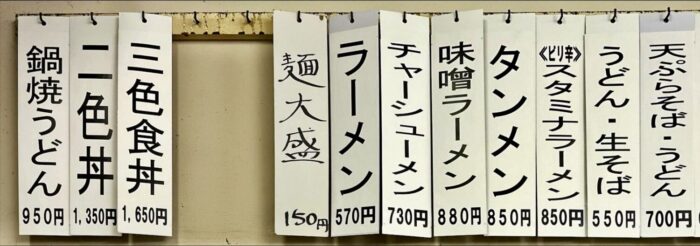 天ぷらそば・うどん
700円
うどん・生そば
550円
《ピリ辛》スタミナラーメン
850円
タンメン
850円
味噌ラーメン
880円
チャーシューメン
730円
ラーメン
570円
麺大盛
150円
三色食丼
1,650円
二色丼
1,350円
鍋焼うどん
950円